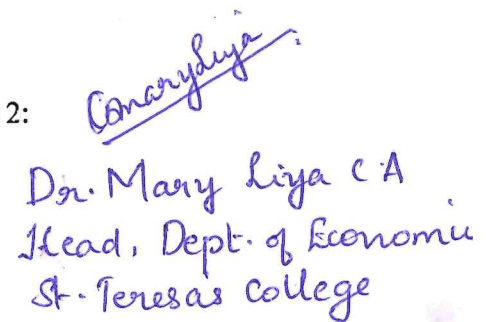 2:
Dr. Mary Liya C A
Head, Dept. of Economic
St. Teresas College